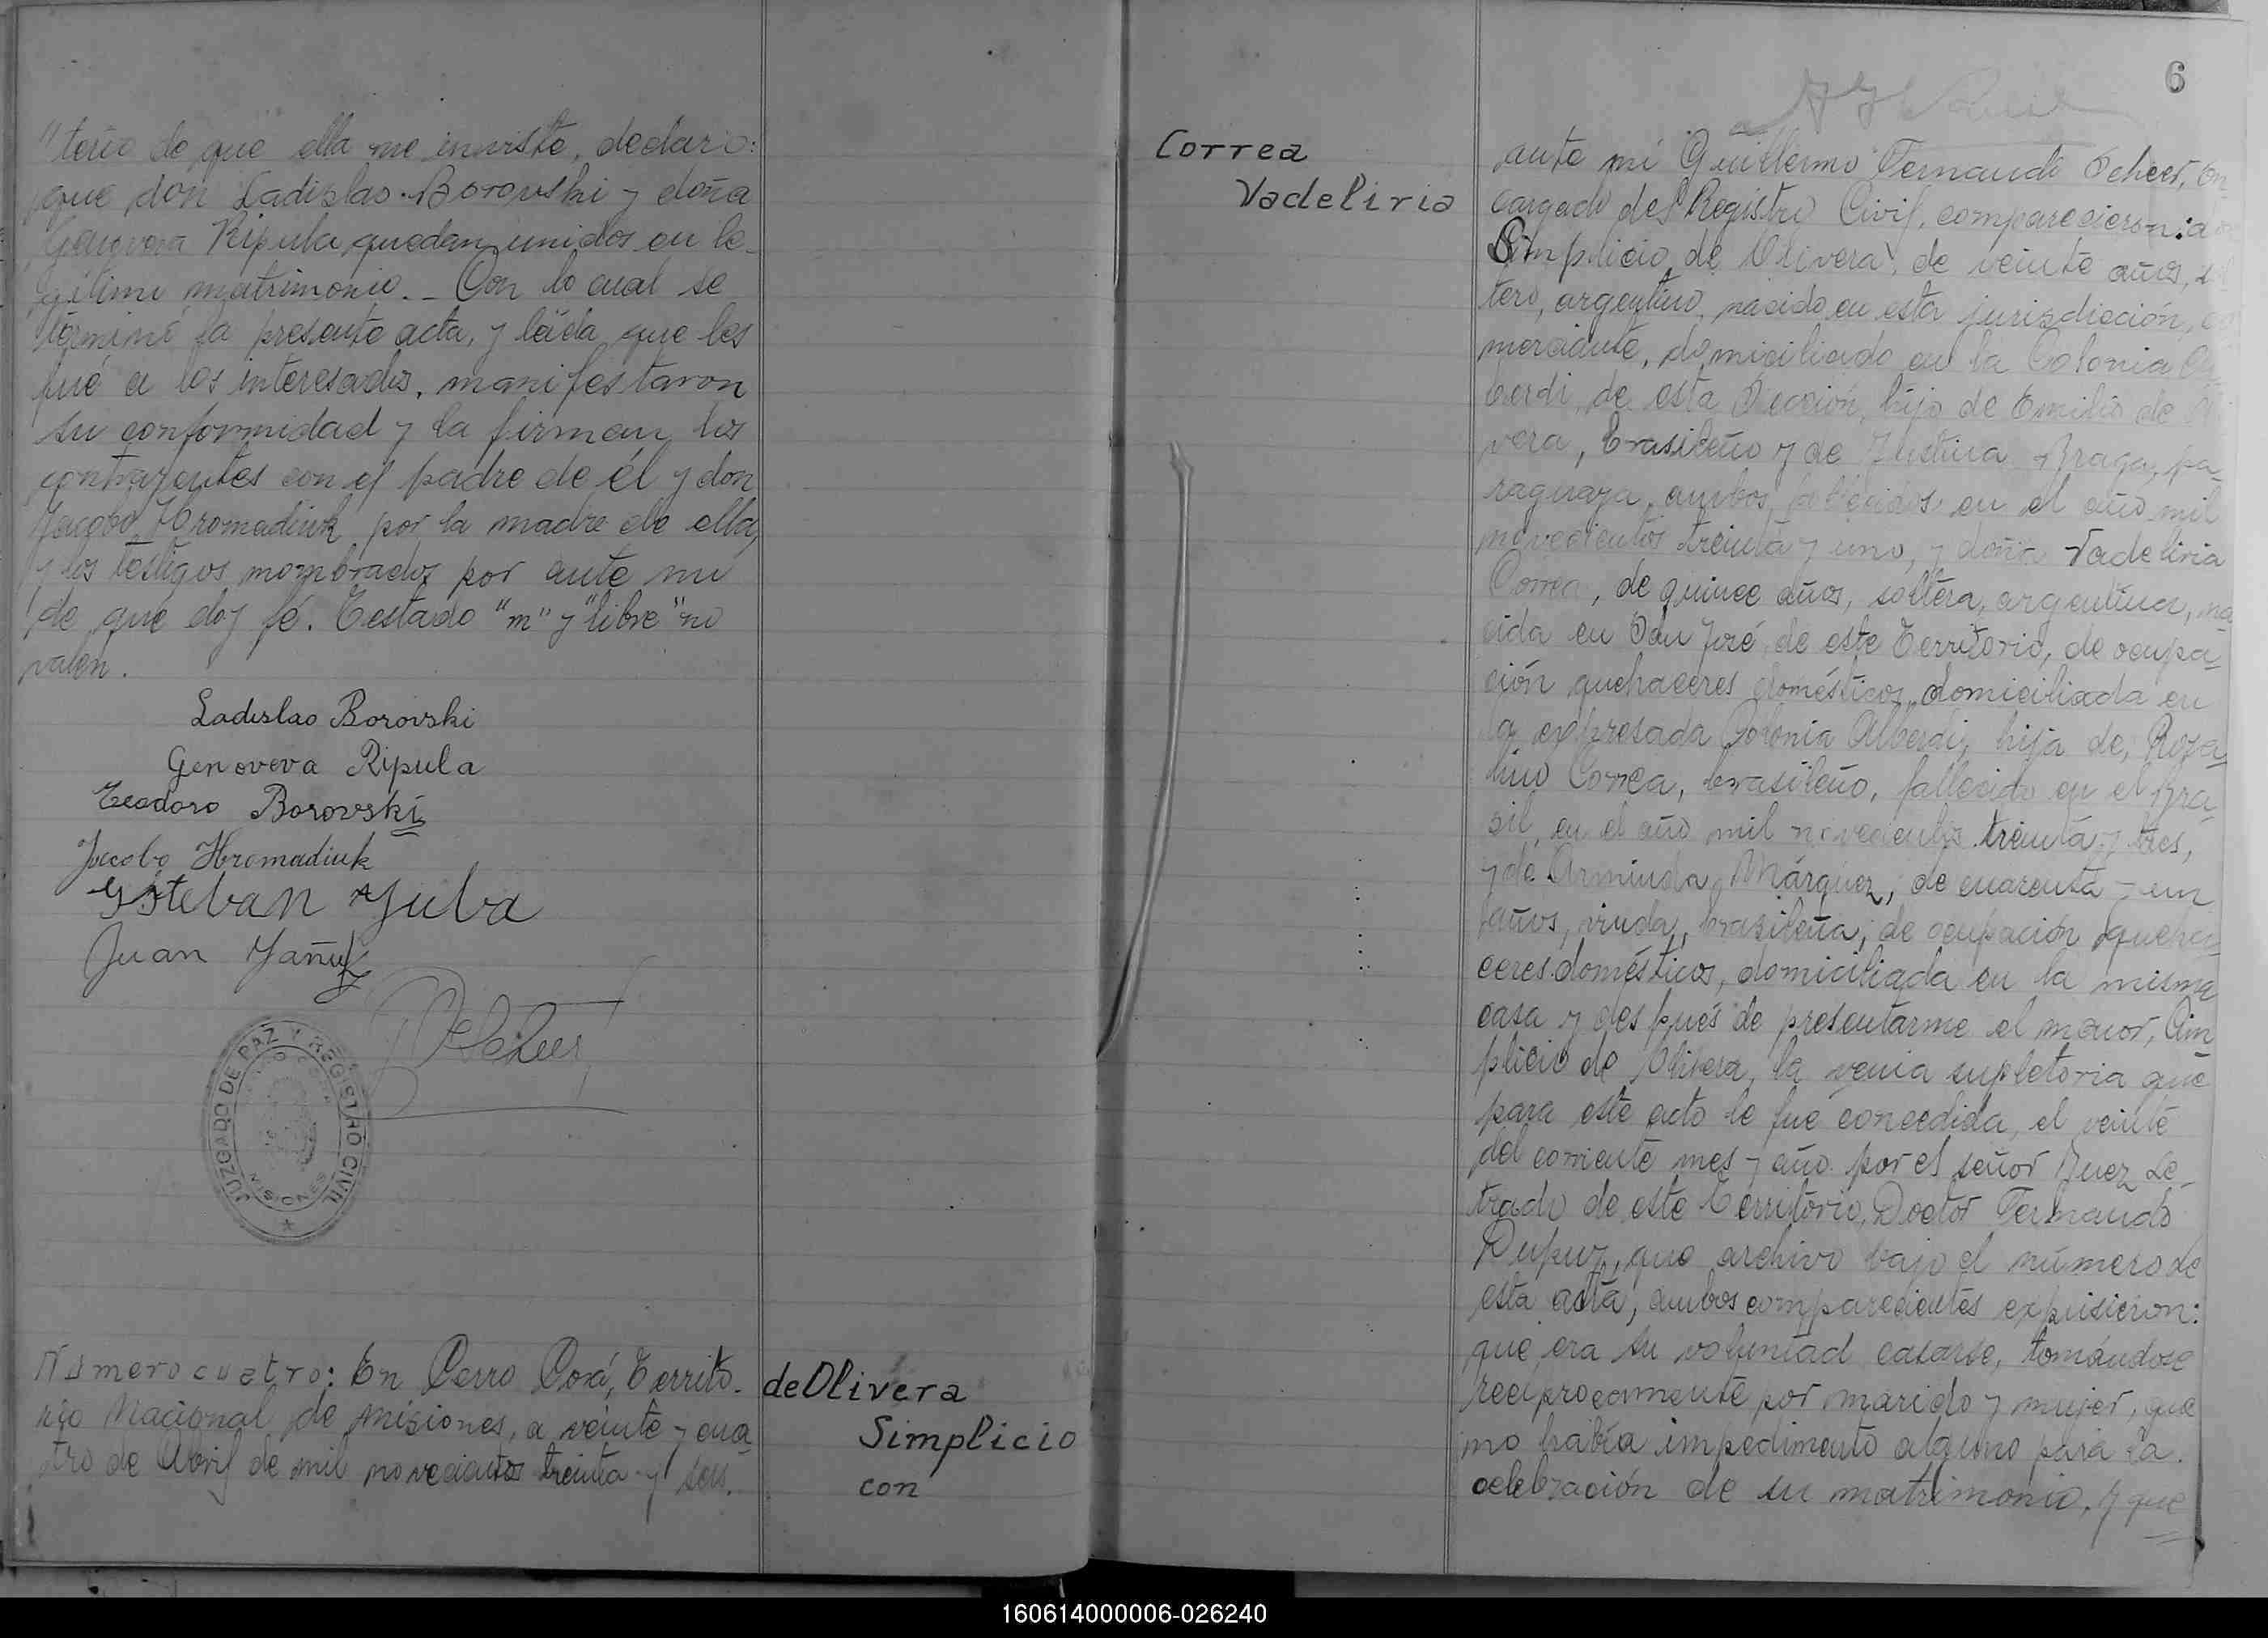 "terio de que ella me inviste, declaro:
que don Ladislao Borovski y doña
Genoveva Ripula quedan unidos en le-
gitimo matrimonio. - Con lo cual se
terminó la presente acta, y leída que les
fué a los interesados, manifestaron
su conformidad y la firman los
contrayentes con el padre de él y don
Jacobo Hromadiuk por la madre de ella,
y los testigos nombrados por ante mi
de que doy fé. Testado "m" y "libre" no
valen.
Ladislao Borovski
Genoveva Ripula
Teodoro Borovski
Jacobo Hromadiuk
Esteban Yulva
Juan Yañuk
JUZGADO DE PAZ Y REGISTRO CIVIL
MISIONES
Número cuatro: En Cerro Corá, Territo-
rio Nacional de Misiones, a veinte y cua
tro de Abril de mil novecientos treinta y seis.
de Olivera
Simplicio
con
Correa
Vadeliria
6
ante mi Guillermo Fernando Scheer, en
cargado del Registro Civil, comparecieron:
Simplicio de Olivera, de veinte años, sol
tero, argentino, nacido en esta jurisdicción, co
merciante, domiciliado en la Colonia Al-
berdi, de esta Sección, hijo de Emilio de Oli
vera, brasileño y de Justina Braga, pa-
raguaya, ambos fallecidos en el año mil
novecientos treinta y uno, y doña Vadeliria
Correa, de quince años, soltera, argentina, na
cida en San José, de este Territorio, de ocupa-
ción quehaceres domésticos, domiciliada en
la expresada Colonia Alberdi, hija de, Roza-
lino Correa, brasileño, fallecido en el Bra-
sil, en el año mil novecientos treinta y tres,
y de Arminda Márquez, de cuarenta y un
años, viuda, brasileña, de ocupación queha-
ceres domésticos, domiciliada en la misma
casa y después de presentarme el menor, Sim
plicio de Olivera, la venia supletoria que
para este acto le fue concedida, el veinte
del corriente mes y año por el señor Juez Le-
trado de este Territorio, Doctor Fernando
Dupuy, que archivo bajo el número de
esta acta, ambos comparecientes expusieron:
que era su voluntad casarse, tomándose
recíprocamente por marido y mujer, que
no había impedimento alguno para la
celebración de su matrimonio, y que
160614000006-026240